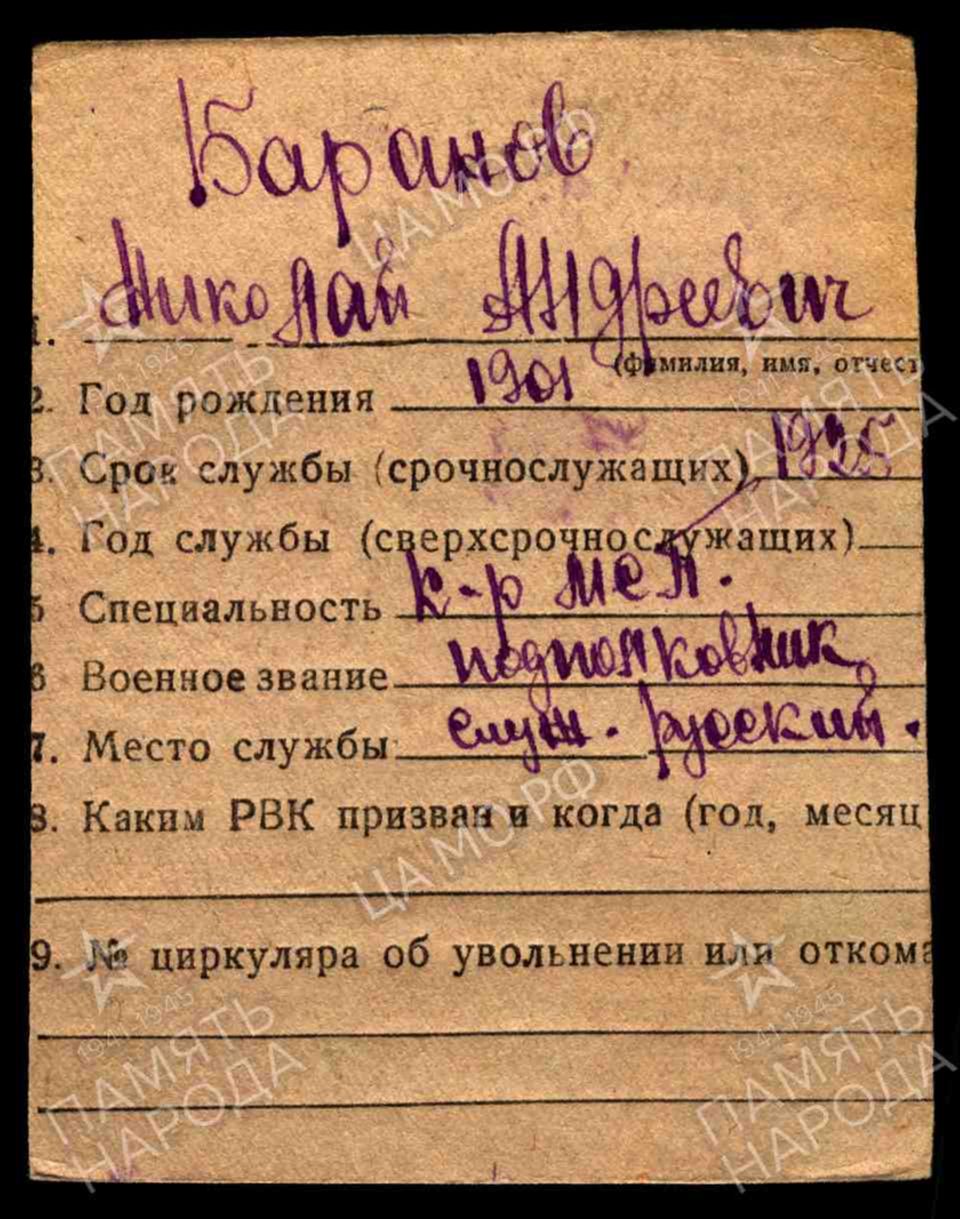 Баранов
Николай Андреевич
1.
(фамилия, имя, отчест
2. Год рождения 1901
3. Срок службы (срочнослужащих) 1925
4. Год службы (сверхсрочнослужащих)
5 Специальность к-р мсп.
6 Военное звание подполковник
7. Место службы служ. русский.
8. Каким РВК призван и когда (год, месяц
9. № циркуляра об увольнении или откома
ЦА МО.РФ
1941-1945
ПАМЯТЬ
НАРОДА
1941-1945
ПАМЯТЬ
НАРОДА
ЦА МО.РФ
1941-1945
ПАМЯТЬ
НАРОДА
1941-1945
ПАМЯТЬ
НАРОДА